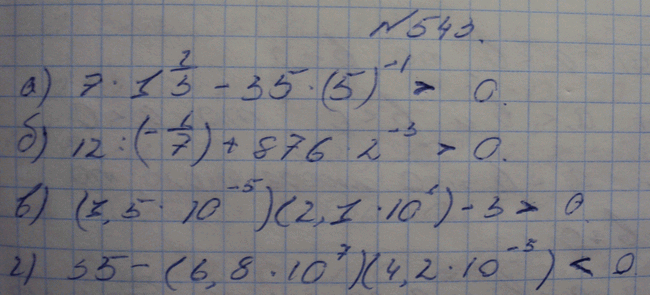 №543.
а) 7 · 1^(2/3) − 35 · (5)^(-1) > 0.
б) 12 : (−1/7) + 876 · 2^(-3) > 0.
в) (1,5 · 10^(-5))(2,1 · 10^1) − 3 > 0.
г) 55 − (6,8 · 10^7)(4,2 · 10^(-5)) < 0